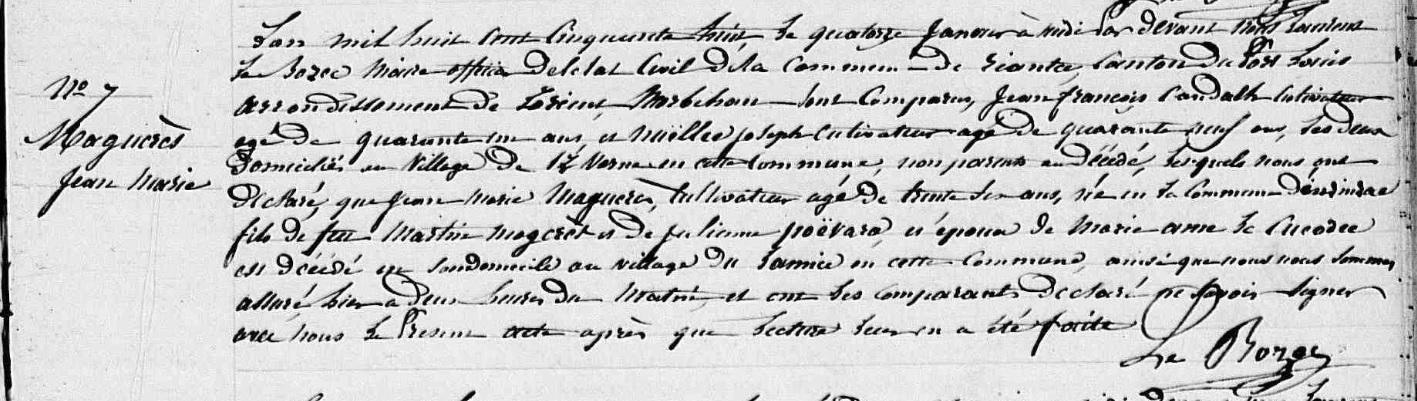 L'an mil huit cent cinquante huit, le quatorze Janvier à midi Par devant Nous Laurent
Le Bozec Maire officier de l'état Civil de la Commune de Riantec, Canton du Port Louis
arrondissement de Lorient, Morbihan sont Comparus, Jean françois Candalh Cultivateur
agé de quarante un ans, et joseph Cultivateur agé de quarante neuf ans, les deux
domiciliés au Village de en cette Commune, non parents au décédé, lesquels nous ont
déclaré, que Jean Marie Maguerès, Cultivateur agé de trente six ans, né en la Commune
fils de feu Martin Magerès et de julienne et époux de Marie anne le
est décédé en son domicile au village du en cette Commune, ainsi que nous nous sommes
assuré, hier à deux heures du Matin, et ont les comparants déclaré ne Savoir Signer
avec nous le Présent acte après que lecture leur en a été faite
Le Bozec
No 7
Maguerès
Jean Marie